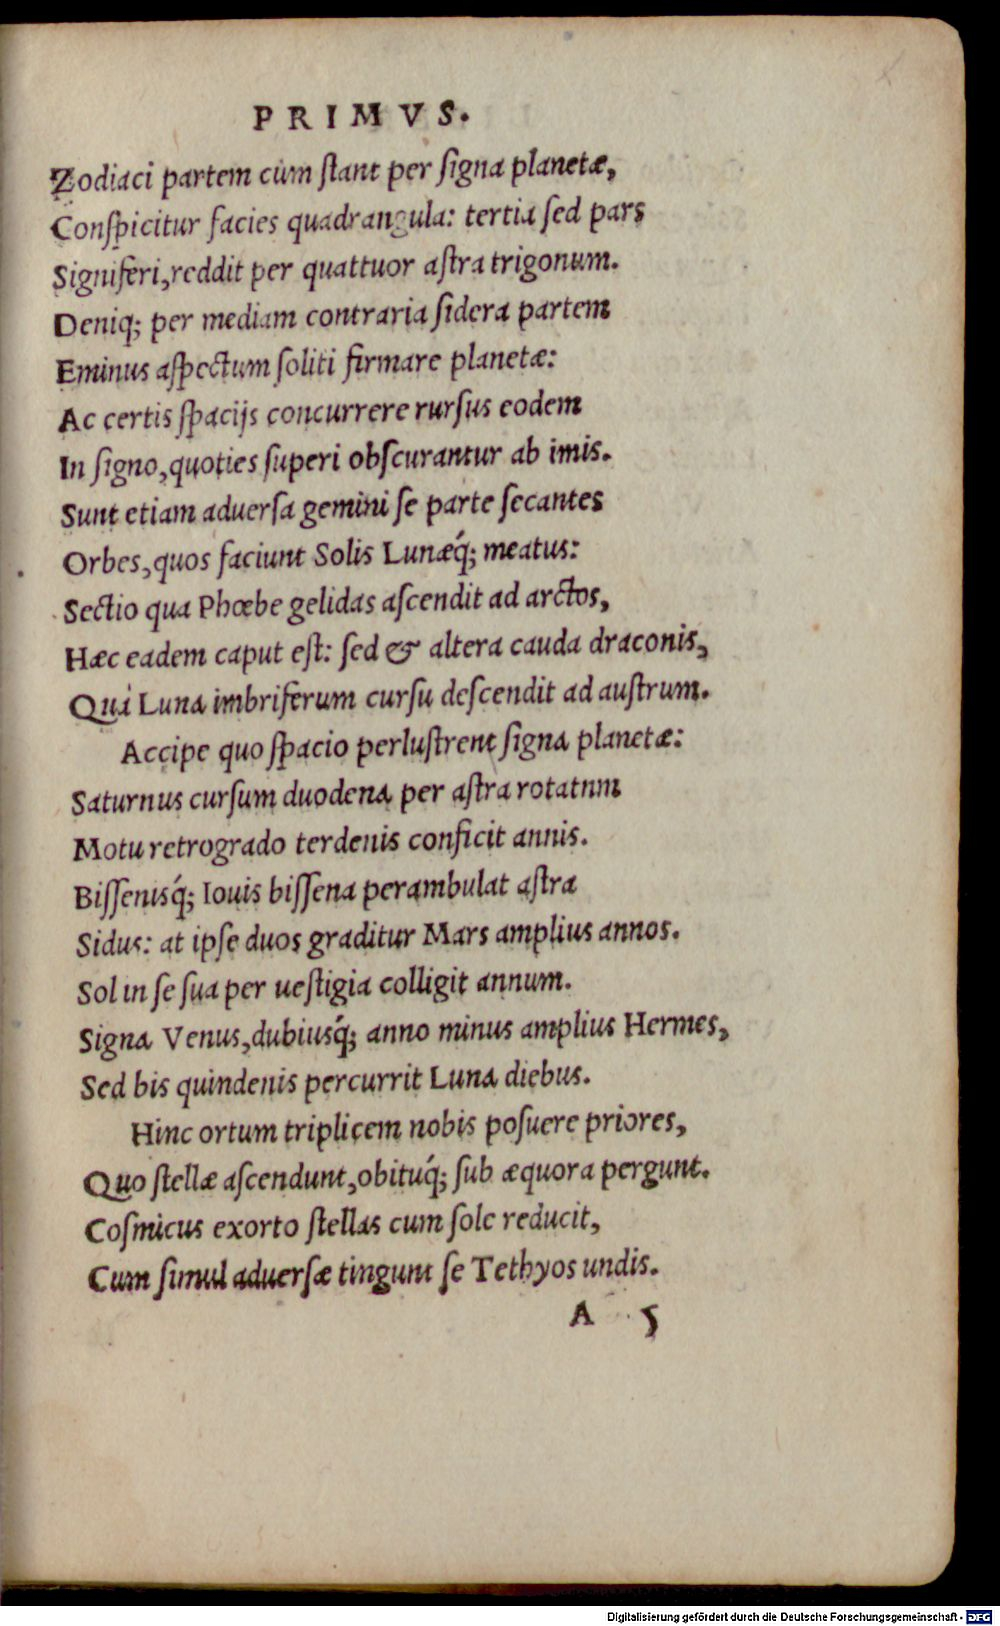 PRIMVS.
Zodiaci partem cùm ſtant per ſigna planetæ,
Conſpicitur facies quadrangula: tertia ſed pars
Signiferi, reddit per quattuor aſtra trigonum.
Deniq; per mediam contraria ſidera partem
Eminus aſpectum ſoliti firmare planetæ:
Ac certis ſpacijs concurrere rurſus eodem
In ſigno, quoties ſuperi obſcurantur ab imis.
Sunt etiam aduerſa gemini ſe parte ſecantes
Orbes, quos faciunt Solis Lunæq́; meatus:
Sectio qua Phœbe gelidas aſcendit ad arctos,
Hæc eadem caput eſt: ſed & altera cauda draconis,
Quà Luna imbriferum curſu deſcendit ad auſtrum.
Accipe quo ſpacio perluſtrent ſigna planetæ:
Saturnus curſum duodena per aſtra rotatnm
Motu retrogrado terdenis conficit annis.
Biſſenisq́; Iouis biſſena perambulat aſtra
Sidus: at ipſe duos graditur Mars amplius annos.
Sol in ſe ſua per ueſtigia colligit annum.
Signa Venus, dubiusq́; anno minus amplius Hermes,
Sed bis quindenis percurrit Luna diebus.
Hinc ortum triplicem nobis poſuere priores,
Quo ſtellæ aſcendunt, obituq́; ſub æquora pergunt.
Coſmicus exorto ſtellas cum ſole reducit,
Cum ſimul aduerſæ tingunt ſe Tethyos undis.
A 5
Digitalisierung gefördert durch die Deutsche Forschungsgemeinschaft - DFG